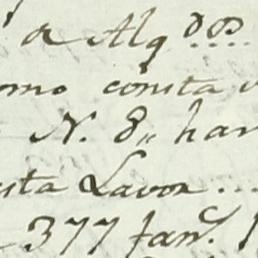 a Alg.dos....
omo consta
N. 8,, har
sta Lavor ...
377 Jan.